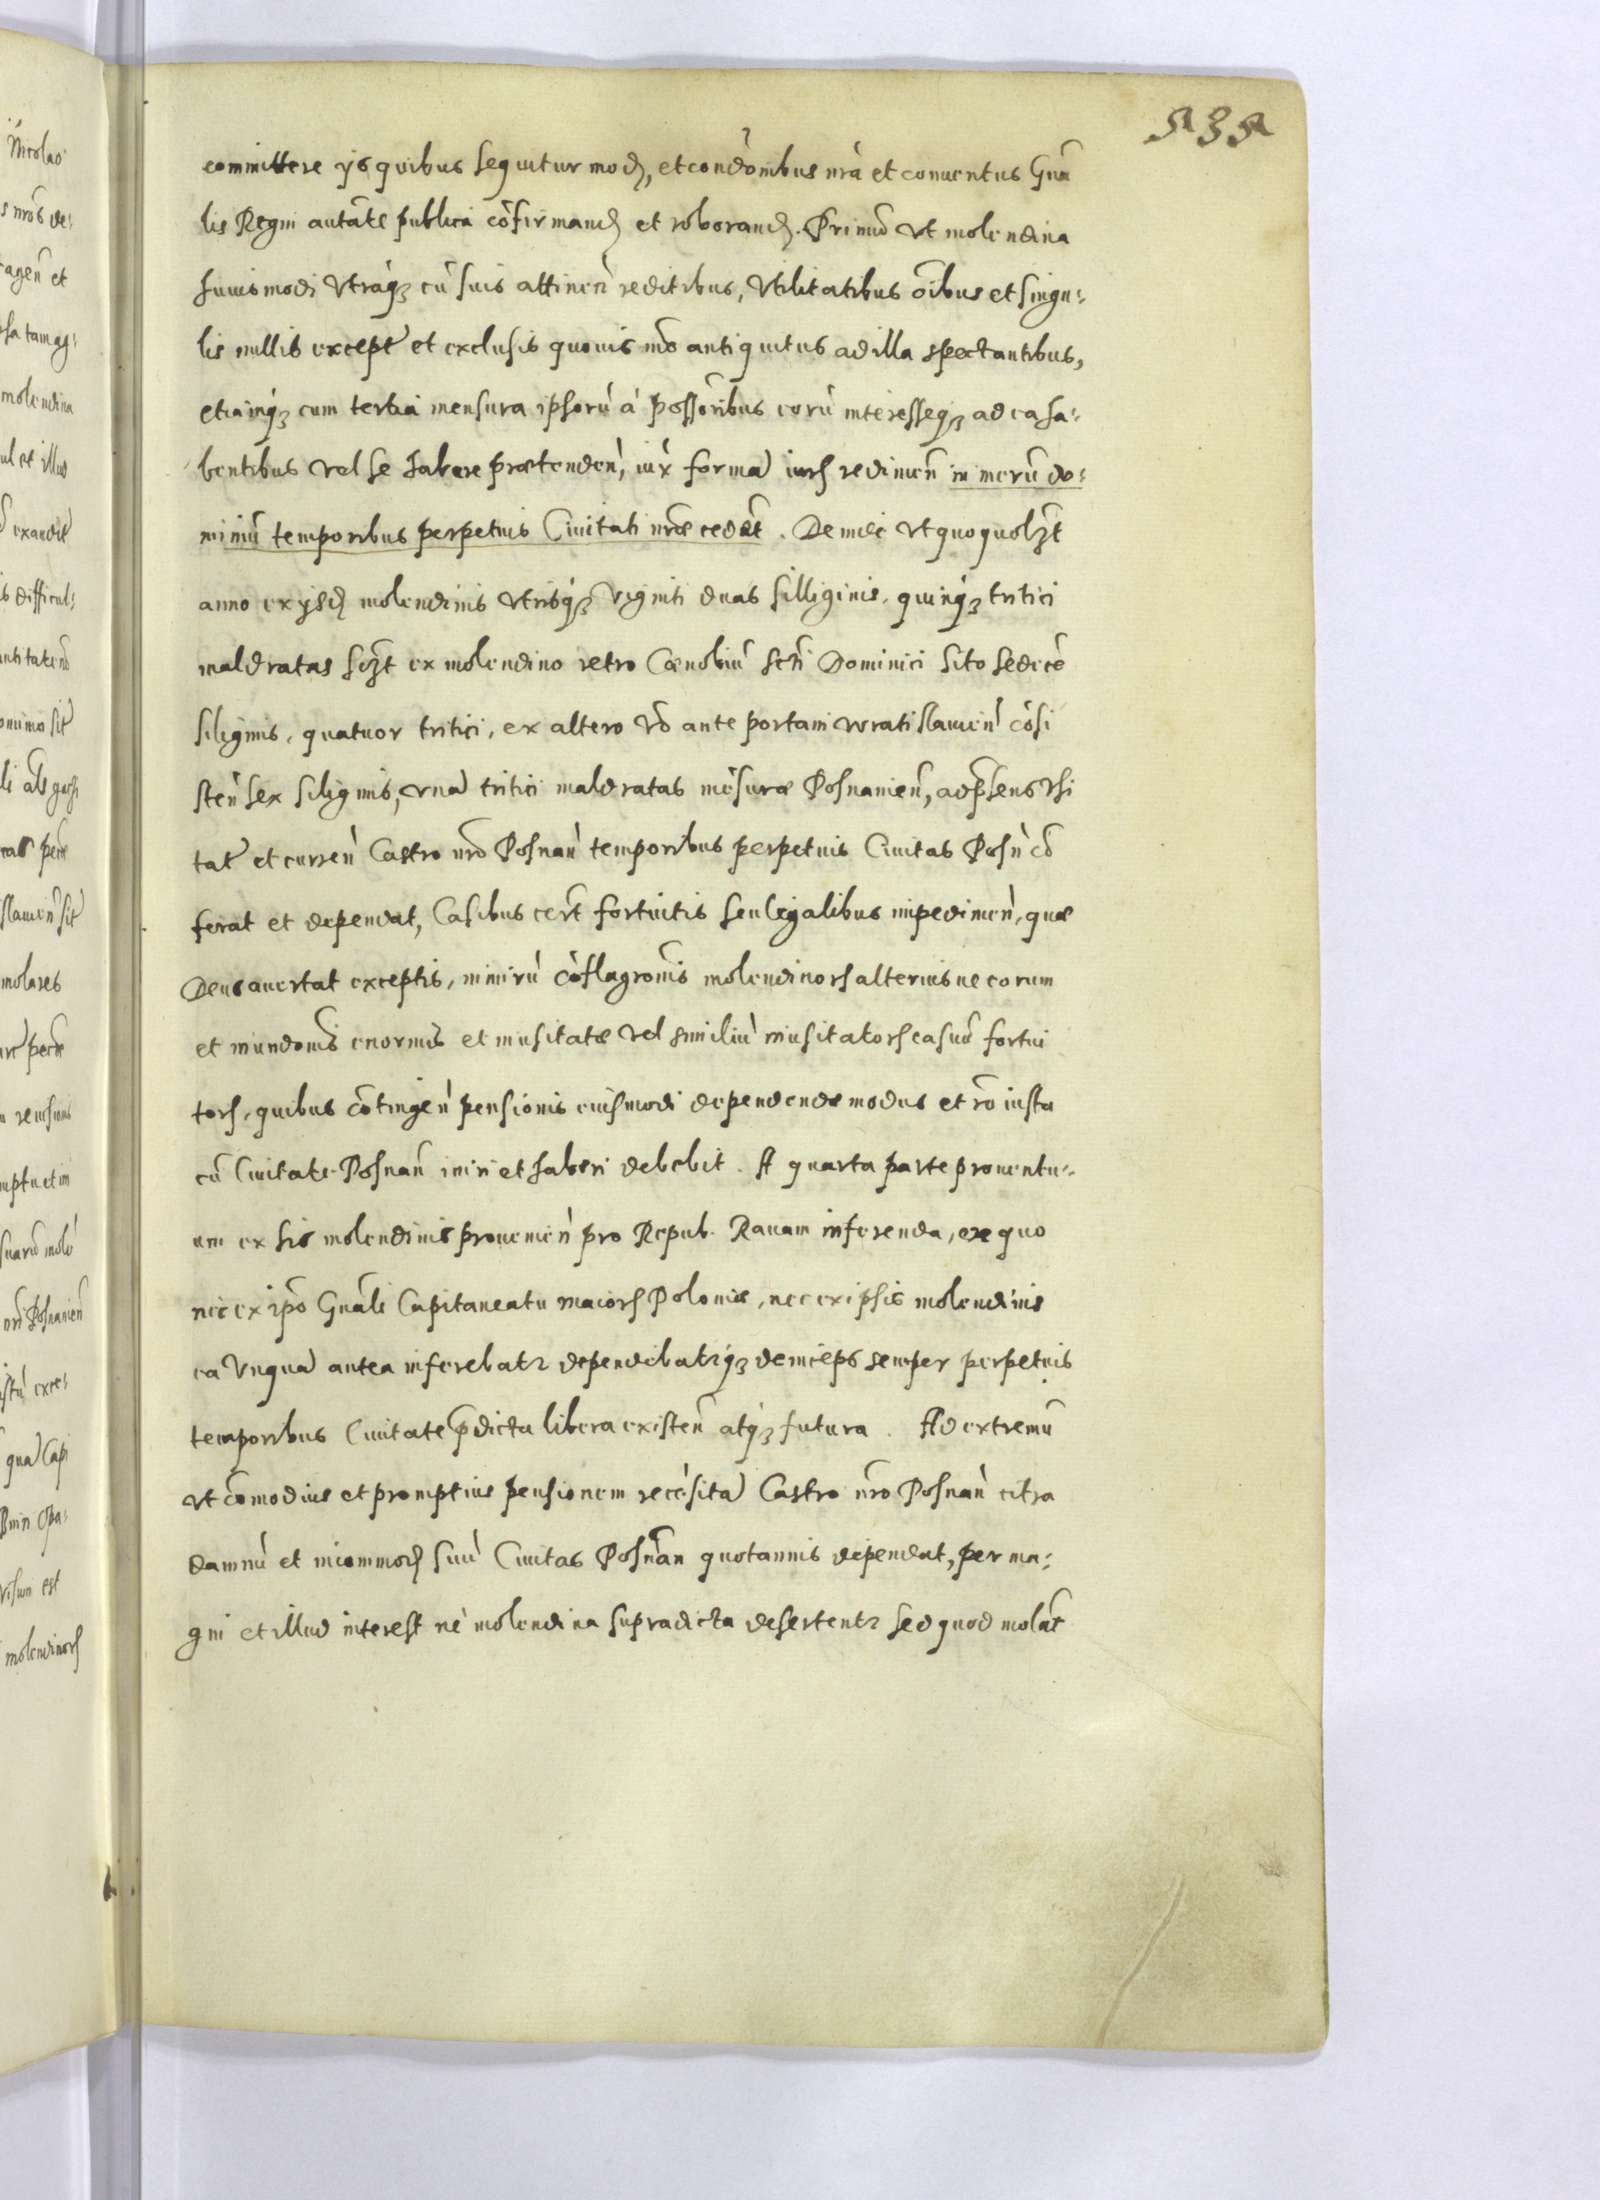 535
committere ijs quibus sequitur mod, et condõnibus nrã et conuentus Gnã
lis Regni autãte publica cõfirmand et roborand. Primũ vt molendina
huiusmodi vtráq cũ suis attineñ reditibus, vtilitatibus õibus et singu:
lis nullis except et exclusis quouis mõ antiquitus ad illa spectantibus,
etiamq cum tertia mensura ipsorũ á possoribus eorũ interesseq ad ea ha:
bentibus vel se habere prætendeñ, iux formã iurs redimeñ in merũ do:
miniũ temporibus perpetuis Ciuitati nræ cedãt. Deinde vt quoquolzt
anno ex ijsd molendinis vtrisq viginti duas silliginis, quinq tritici
maldratas hzt ex molendino retro Cœnobiũ Scti Dominici sito sedecẽ
siliginis, quatuor tritici, ex altero vo ante portam wratislauieñ cõsi
steñ sex siliginis, vnã tritici maldratas mẽsuræ Posnanieñ, ad psens vsi
tat et curreñ Castro nro Posnañ temporibus perpetuis Ciuitas Posñ cõ
ferat et dependat, Casibus cert fortuitis seu legalibus impedimeñ, quæ
Deus auertat exceptis, nimirũ cõflagronis molendinors alterius ne eorum
et inundonis enormis et inusitatæ vel similiũ inusitators casuũ fortui
tors, quibus cõtingeñ pensionis eiusmodi dependendæ modus et ro iusta
cũ Ciuitate Posnañ iniri et haberi debebit. A quarta parte prouentu:
um ex his molendinis prouenieñ pro Repub. Rauam inferenda, ex quo
nec ex ipo Gnãli Capitaneatu maiors Poloniæ, nec ex ipsis molendinis
ea vnquã antea inferebatr dependebatrq deinceps semper perpetuis
temporibus Ciuitate pdicta libera existeñ atq futura. Ad extremũ
vt cõmodius et promptius pensionem recẽsitã Castro nro Posnañ citra
damnũ et incommod suũ Ciuitas Posnañ quotannis dependat, per ma:
gni et illud interest nè molendina supradicta desertentr sed quod molãt